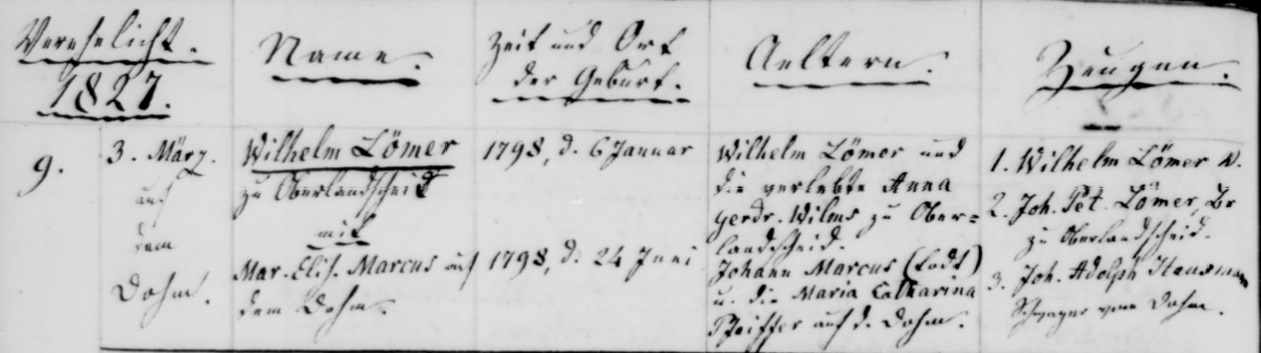 Verehelicht.
1827.
Name.
Zeit und Ort
der Geburt.
Aeltern.
Zeugen.
9.
3. März.
auf
dem
Dohm.
Wilhelm Lömer
zu Oberlandscheid
mit
Mar. Elis. Marcus auf
dem Dohm.
1798, d. 6 Januar
1798, d. 24 Juni
Wilhelm Lömer und
die verlebte Anna
Gerdr. Wilms zu Ober=
landscheid.
Johann Marcus (todt)
u. die Maria Catharina
Pfeiffer auf d. Dohm.
1. Wilhelm Lömer V.
2. Joh. Pet. Lömer, Br
zu Oberlandscheid.
3. Joh. Adolph
Schwager vom Dohm.